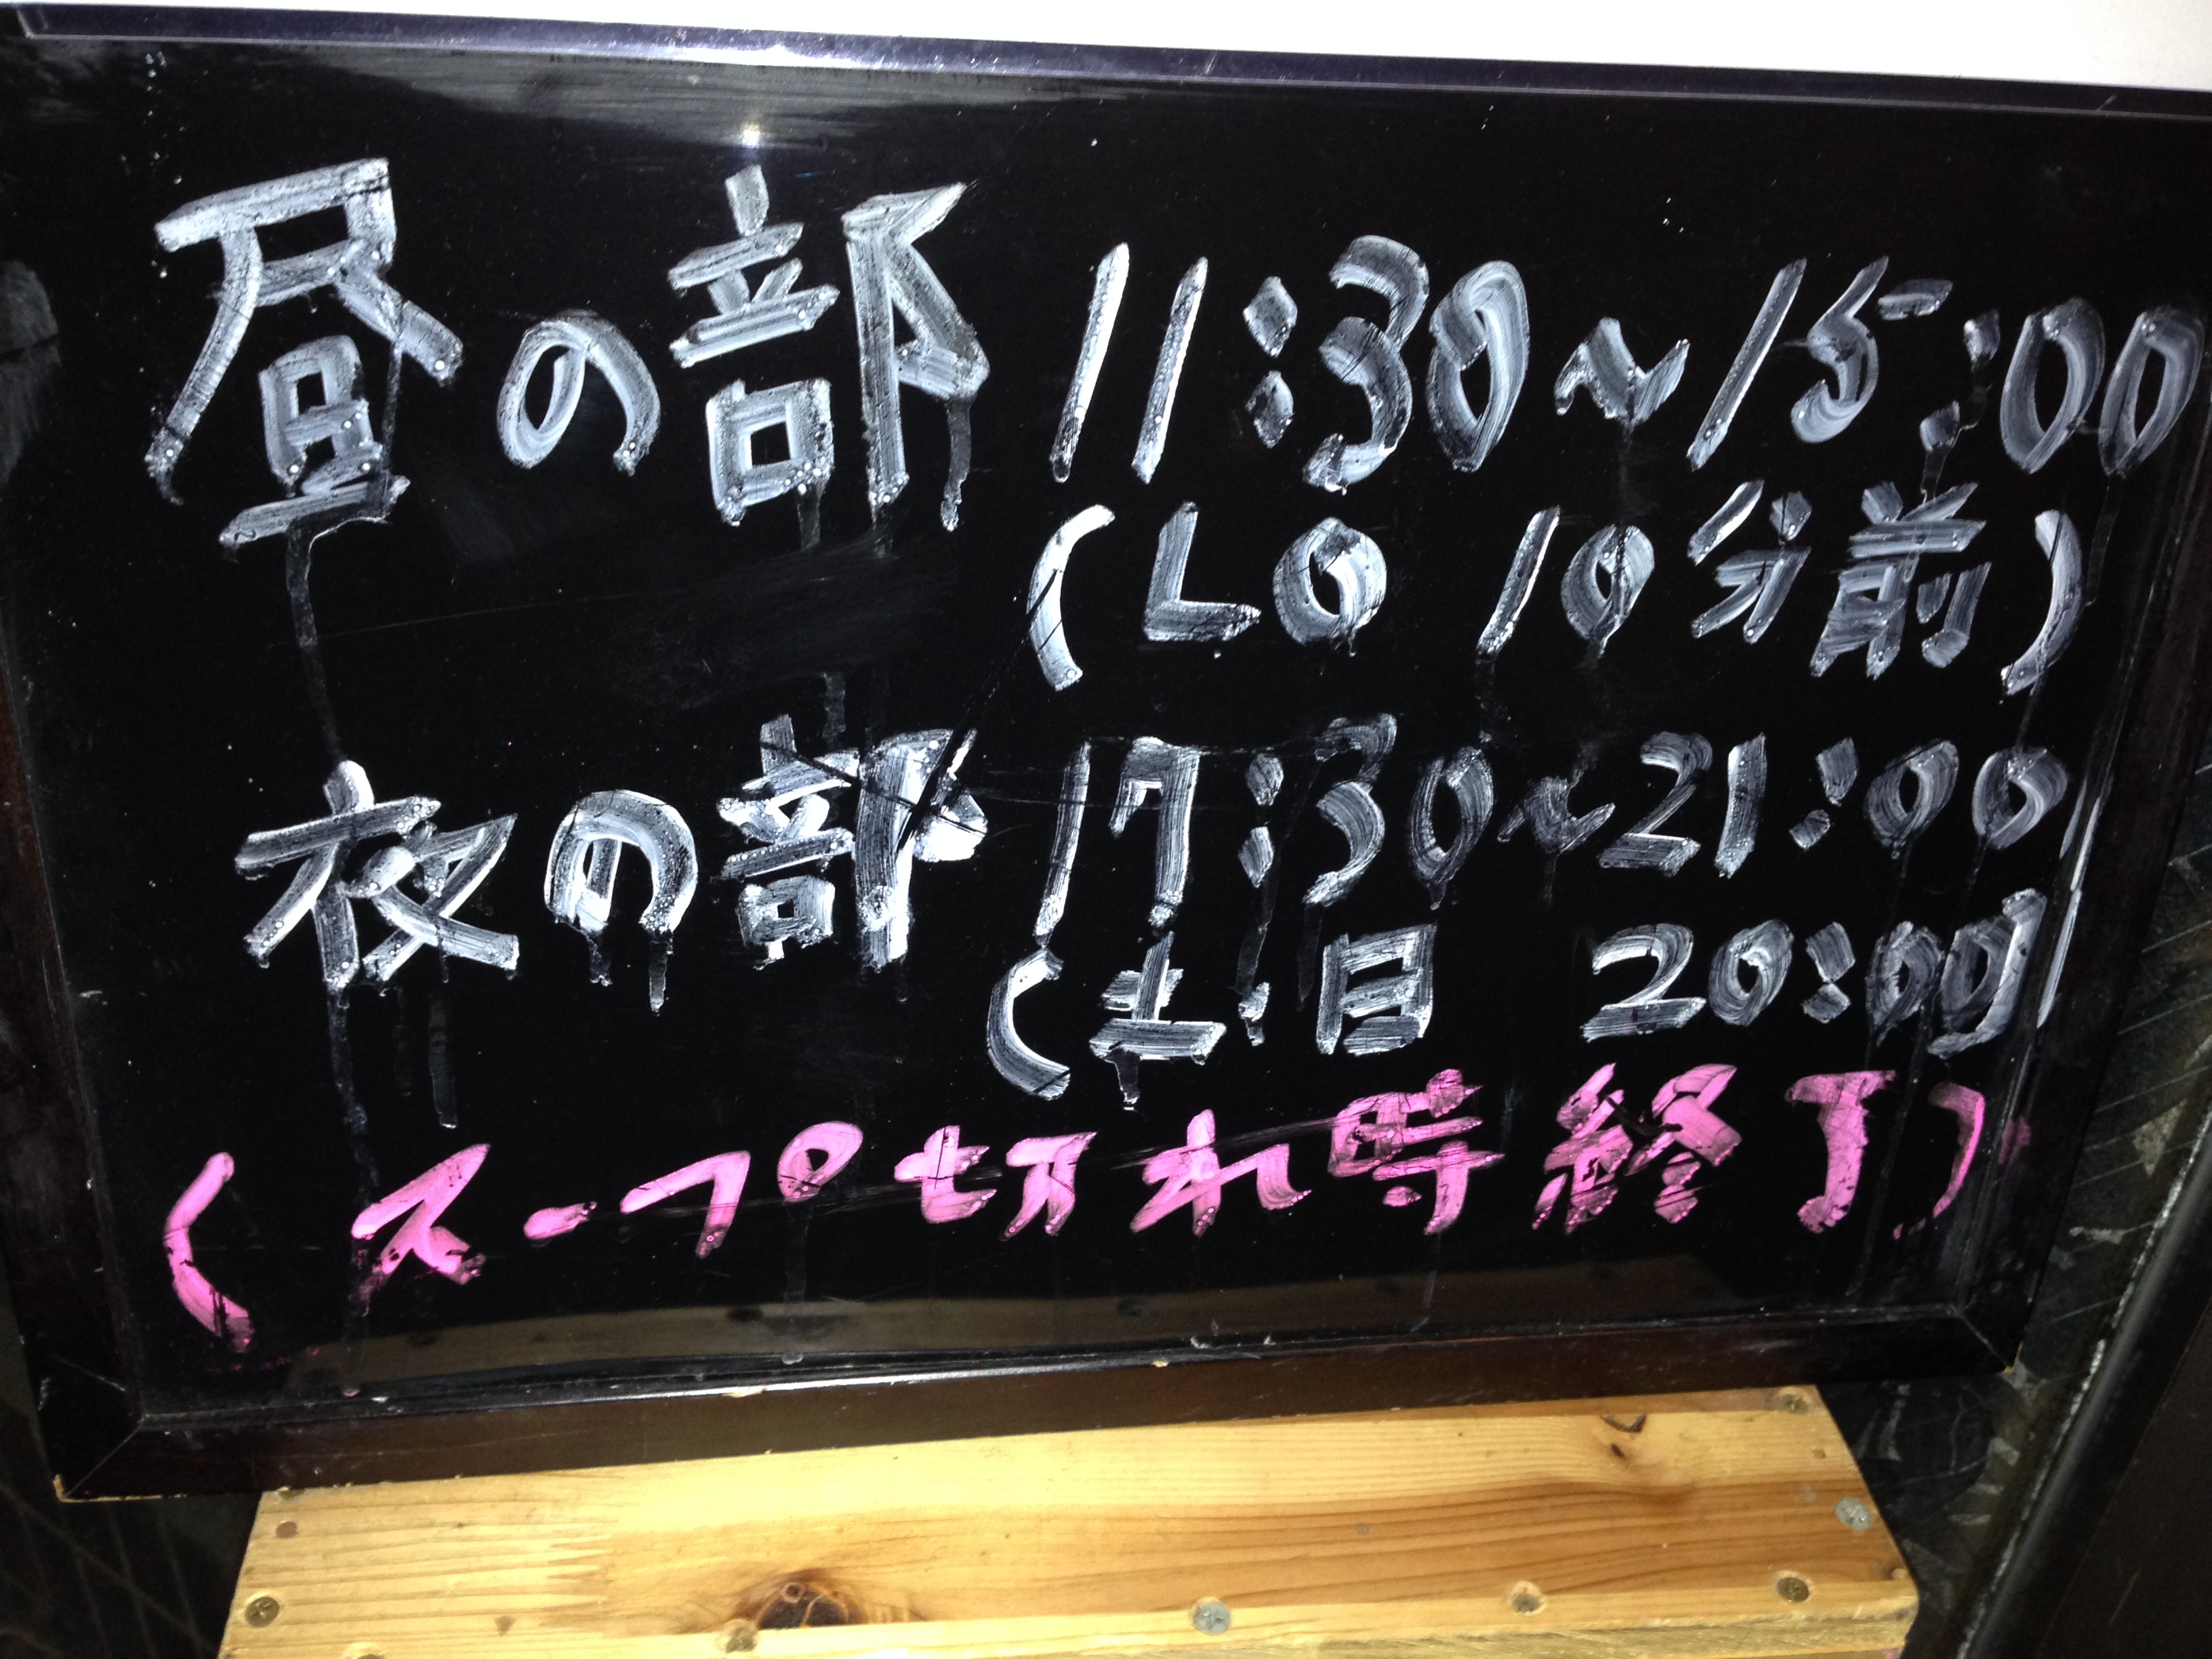 昼の部 11:30~15:00
(LO 10分前)
夜の部 17:30~21:00
(土・日 20:00)
(スープ切れ時終了)